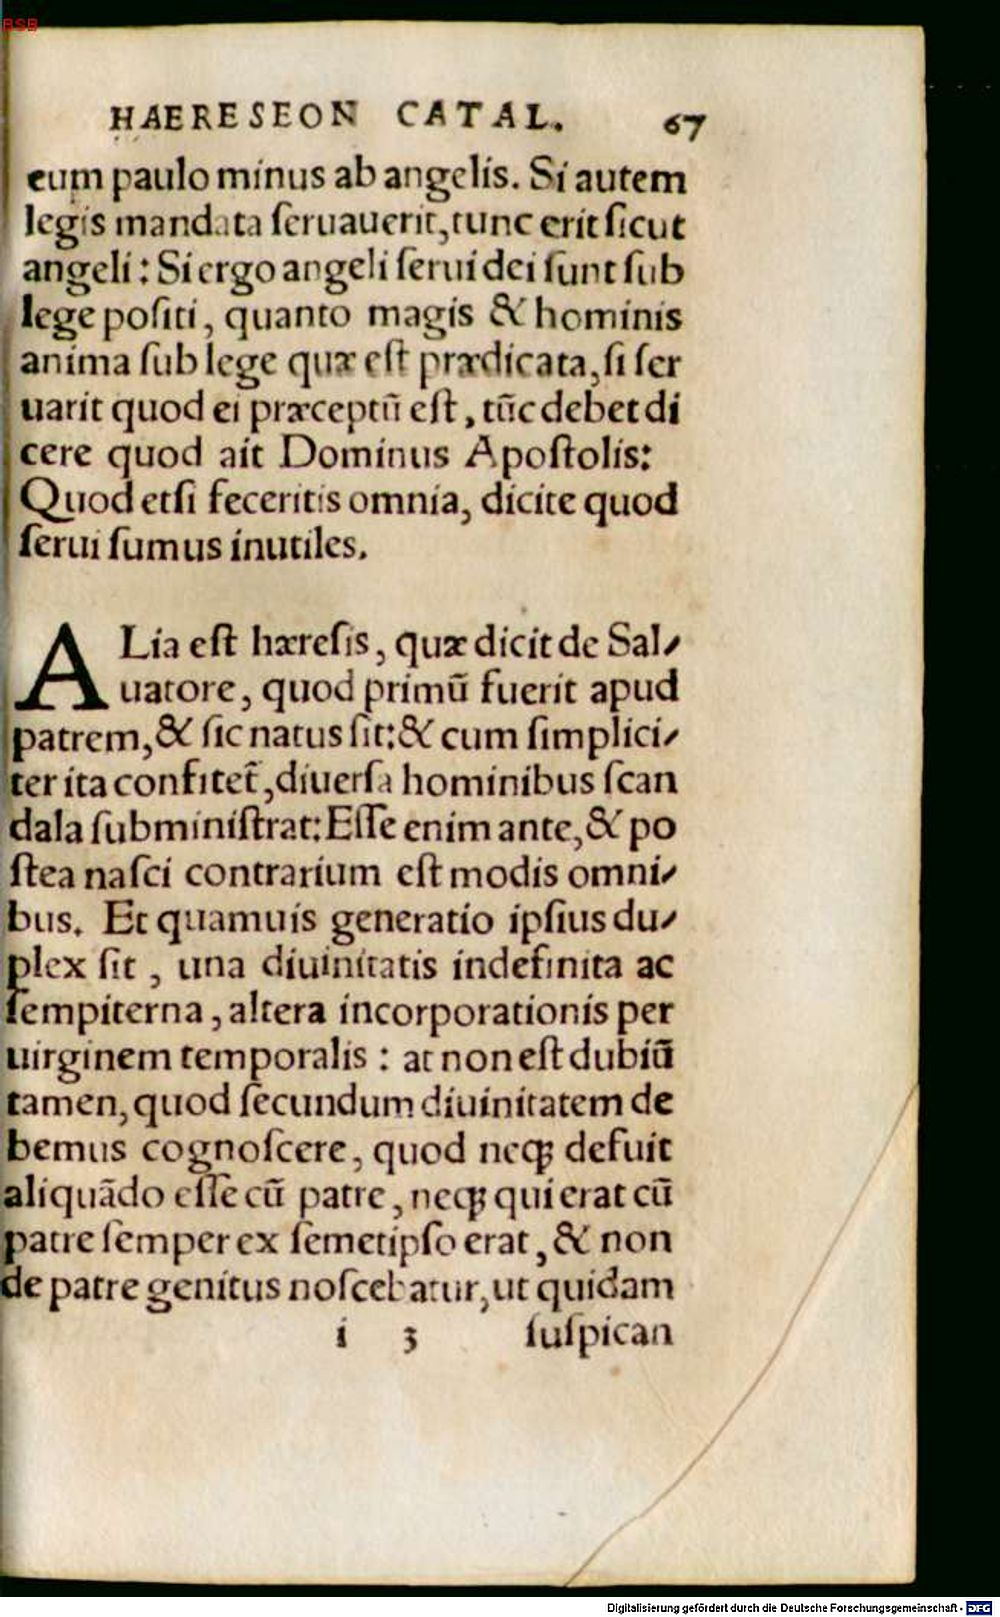 BSB
HAERESEON CATAL. 67
eum paulo minus ab angelis. Si autem
legis mandata ſeruauerit, tunc erit ſicut
angeli: Si ergo angeli ſerui dei ſunt ſub
lege poſiti, quanto magis & hominis
anima ſub lege quæ eſt prædicata, ſi ſer
uarit quod ei præceptū eſt, tūc debet di
cere quod ait Dominus Apoſtolis:
Quod etſi feceritis omnia, dicite quod
ſerui ſumus inutiles.
ALia eſt hæreſis, quæ dicit de Sal⸗
uatore, quod primū fuerit apud
patrem, & ſic natus ſit: & cum ſimplici⸗
ter ita confitet̃, diuerſa hominibus ſcan
dala ſubminiſtrat: Eſſe enim ante, & po
ſtea naſci contrarium eſt modis omni⸗
bus. Et quamuis generatio ipſius du⸗
plex ſit, una diuinitatis indefinita ac
ſempiterna, altera incorporationis per
uirginem temporalis: at non eſt dubiū
tamen, quod ſecundum diuinitatem de
bemus cognoſcere, quod neqꝫ defuit
aliquãdo eſſe cū patre, neqꝫ qui erat cū
patre ſemper ex ſemetipſo erat, & non
de patre genitus noſcebatur, ut quidam
i 3 ſuſpican
Digitalisierung gefördert durch die Deutsche Forschungsgemeinschaft - DFG